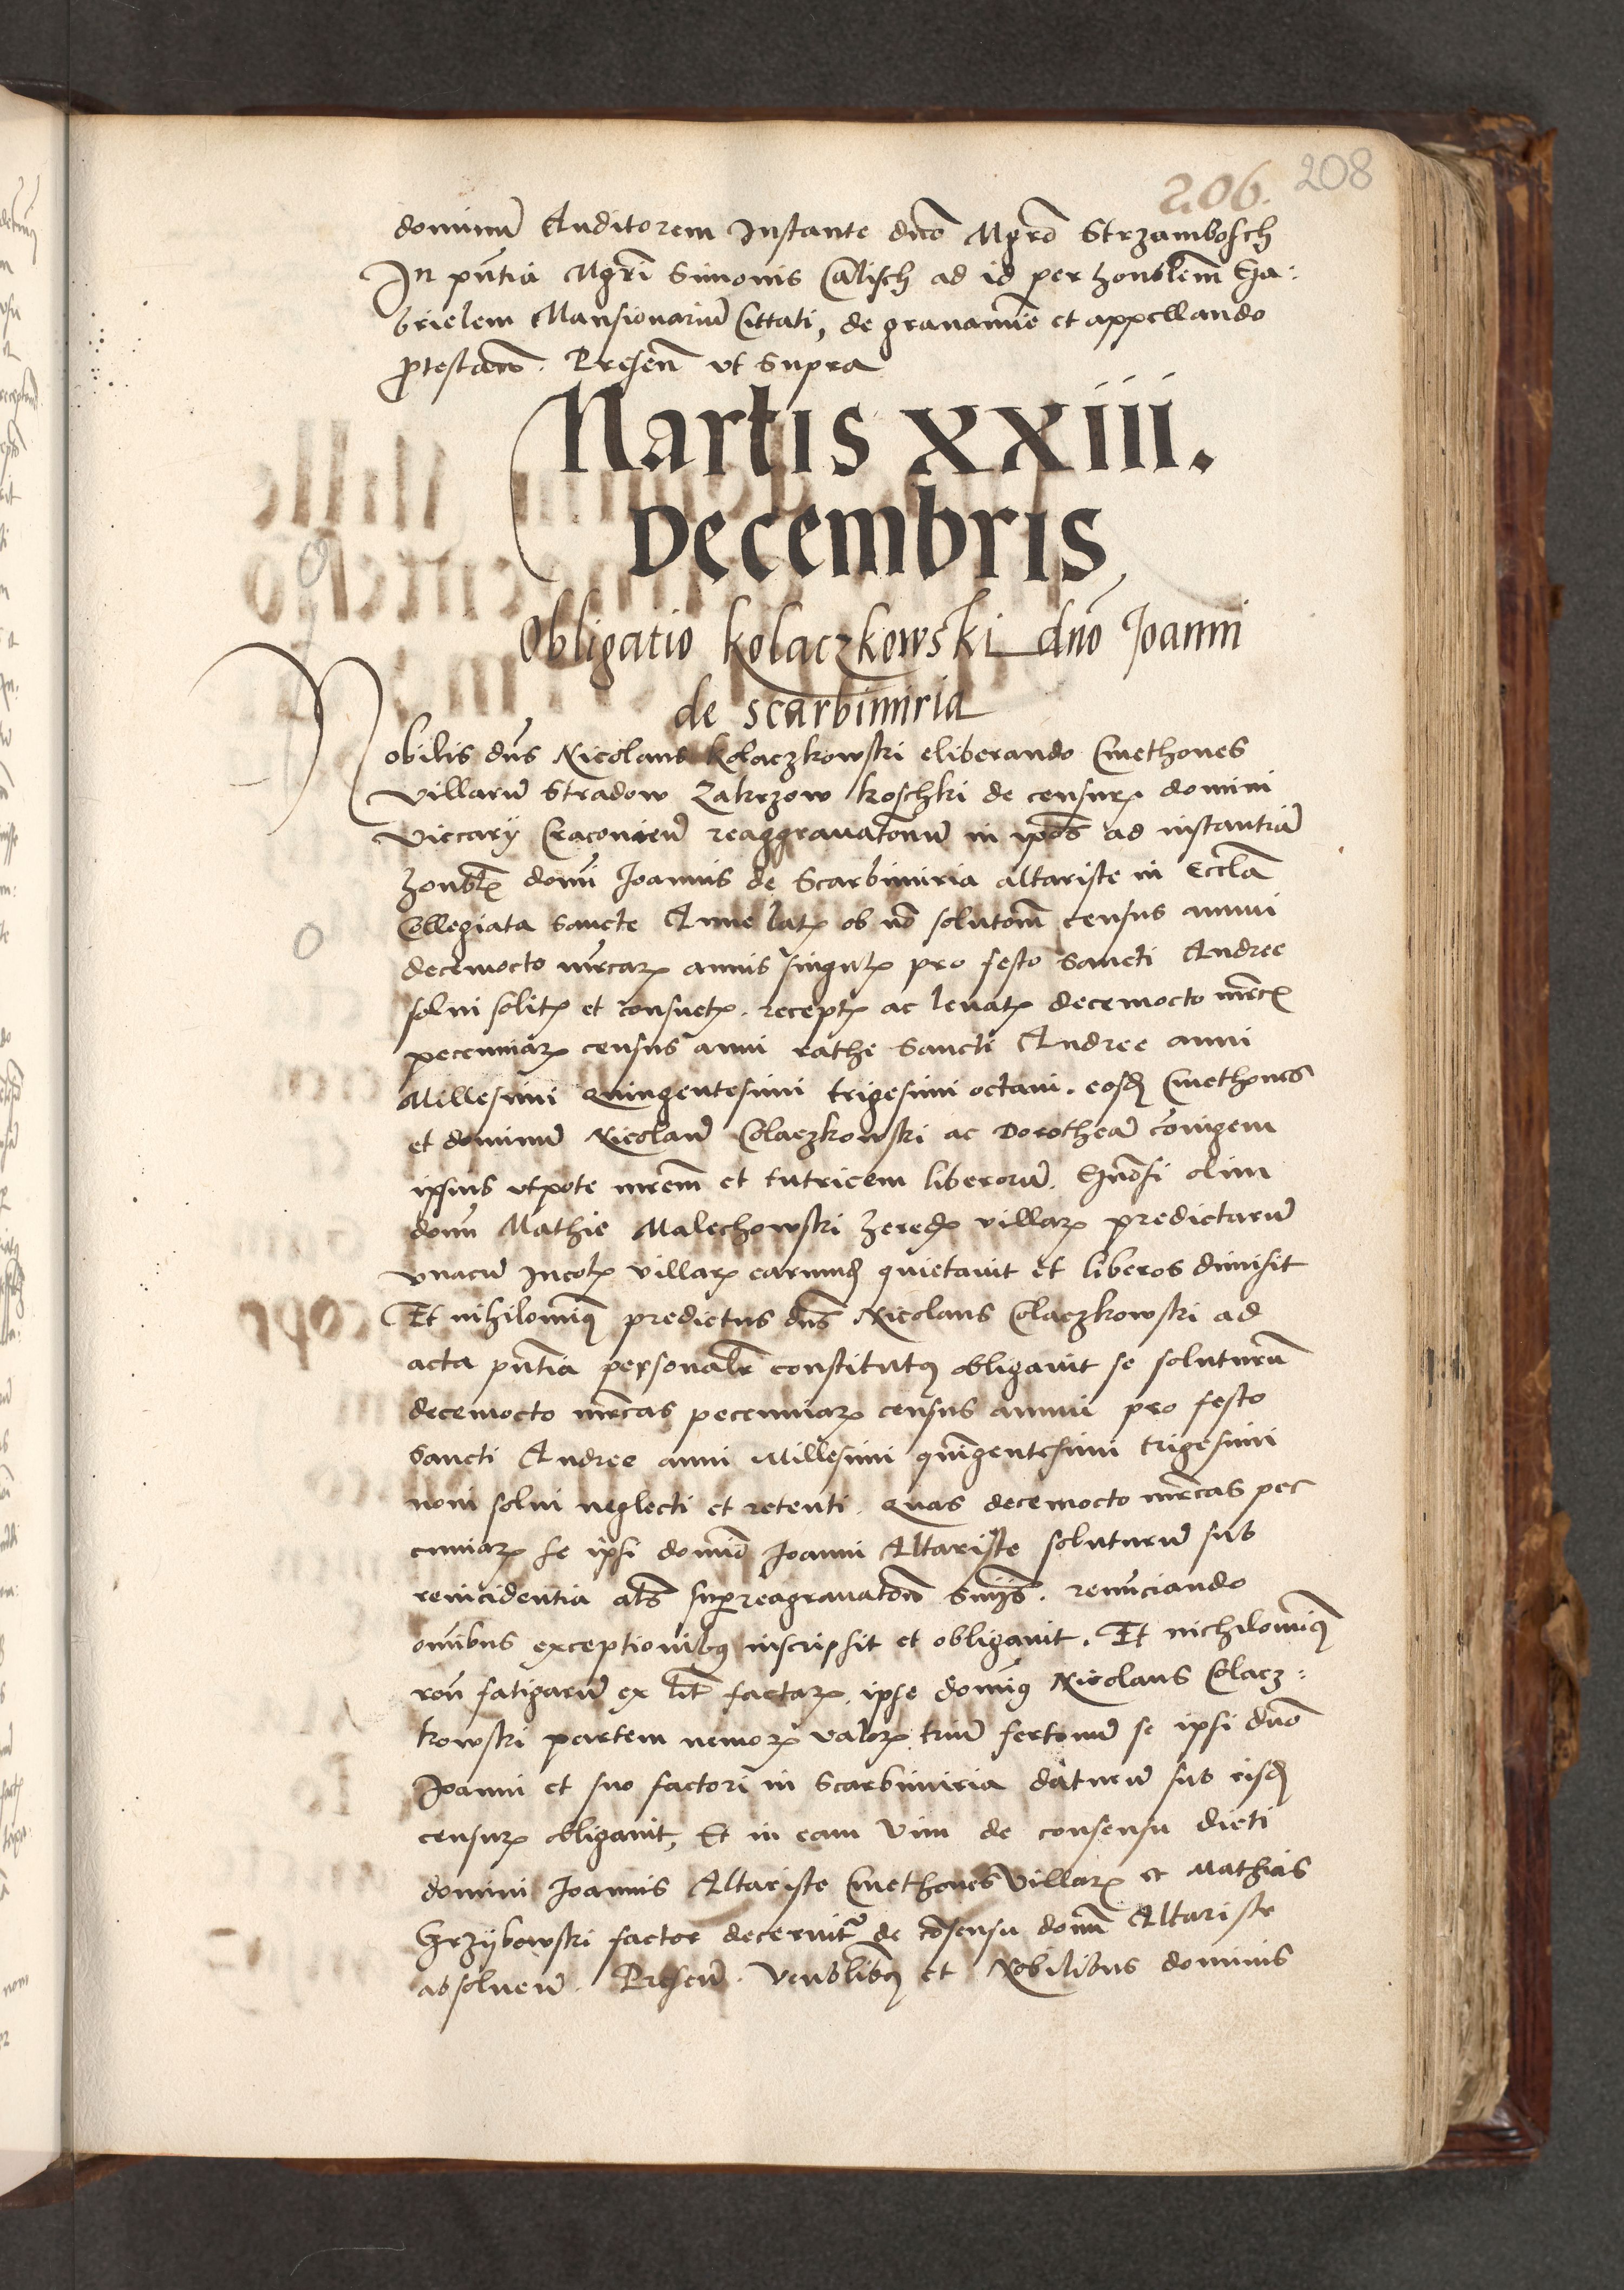 206. 208
dominū Auditorem Instante dno Mgro Strzambosch
In pñtia Mgri Simonis Calisch ad id per honblem Ga:
brielem Mansionariū Cittati, de grauamine et appellando
protestacio. Presen ut supra
Martis xxiii.
Decembris,
Obligatio Kolaczkowski dno Joanni
de Scarbimiria
Nobilis dns Nicolaus Kolaczkowski eliberando Cmethones
villarū Stradow Zakrzow Koschki de censur domini
Viccarij Cracouien reaggrauatonū in ipos ad instantiā
honblis domi Joannis de Scarbimiria altariste in Eccla
Collegiata Sancte Anne lat ob no solutom census annui
decemocto mrcar annis singul pro festo Sancti Andree
solui solit et consuet. recept ac leuat decemocto mrcis
pecuniar census anni rathe Sancti Andree anni
Millesimi Quingentesimi trigesimi octaui. eosd Cmethones
et dominū Nicolaū Colaczkowski ac Dorotheā coniugem
ipsius utpote mrem et tutricem liberorū. Gnosi olim
domi Mathie Malechowski hered villar predictarū
vnacū Incol villar earund quietauit et liberos dimisit
Et nihilomin predictus dns Nicolaus Colaczkowski ad
acta pntia personalr constitut obligauit se soluturū
decemocto mrcas pecuniar census annui pro festo
Sancti Andree anni Millesimi quingentesimi trigesimi
noni solui neglecti et retenti. Quas decemocto mrcas pec
cuniar se ipsi domino Joanni Altariste soluturū sub
reincidentia ats superreagrauaton snijs. renunciando
omibus exceptionib inscripsit et obligauit. Et nichilomin
ron fatigarū ex lit factar. ipse domin Nicolaus Colacz:
kowski partem nemor valor triū fertonū se ipsi dno
Joanni et suo factori in Scarbimiria daturū sub eisd
censur obligauit, Et in eam vim de consensu dicti
domini Joannis Altariste Cmethones villar et Mathias
Grzybowski factor decernitr de cosensu domi Altariste
absoluen. Presen. Venblib et Nobilibus dominis